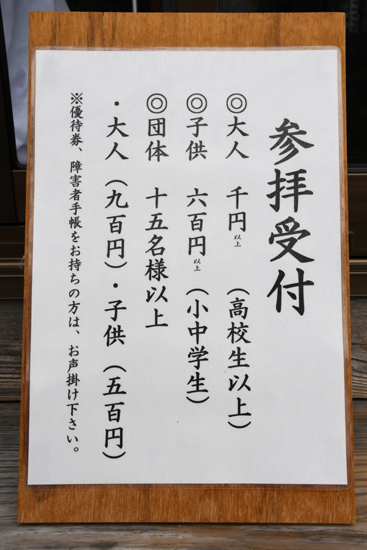 参拝受付
◎大人 千円以上 (高校生以上)
◎子供 六百円以上 (小中学生)
◎団体 十五名様以上
・大人(九百円)・子供(五百円)
※優待券、障害者手帳をお持ちの方は、お声掛け下さい。